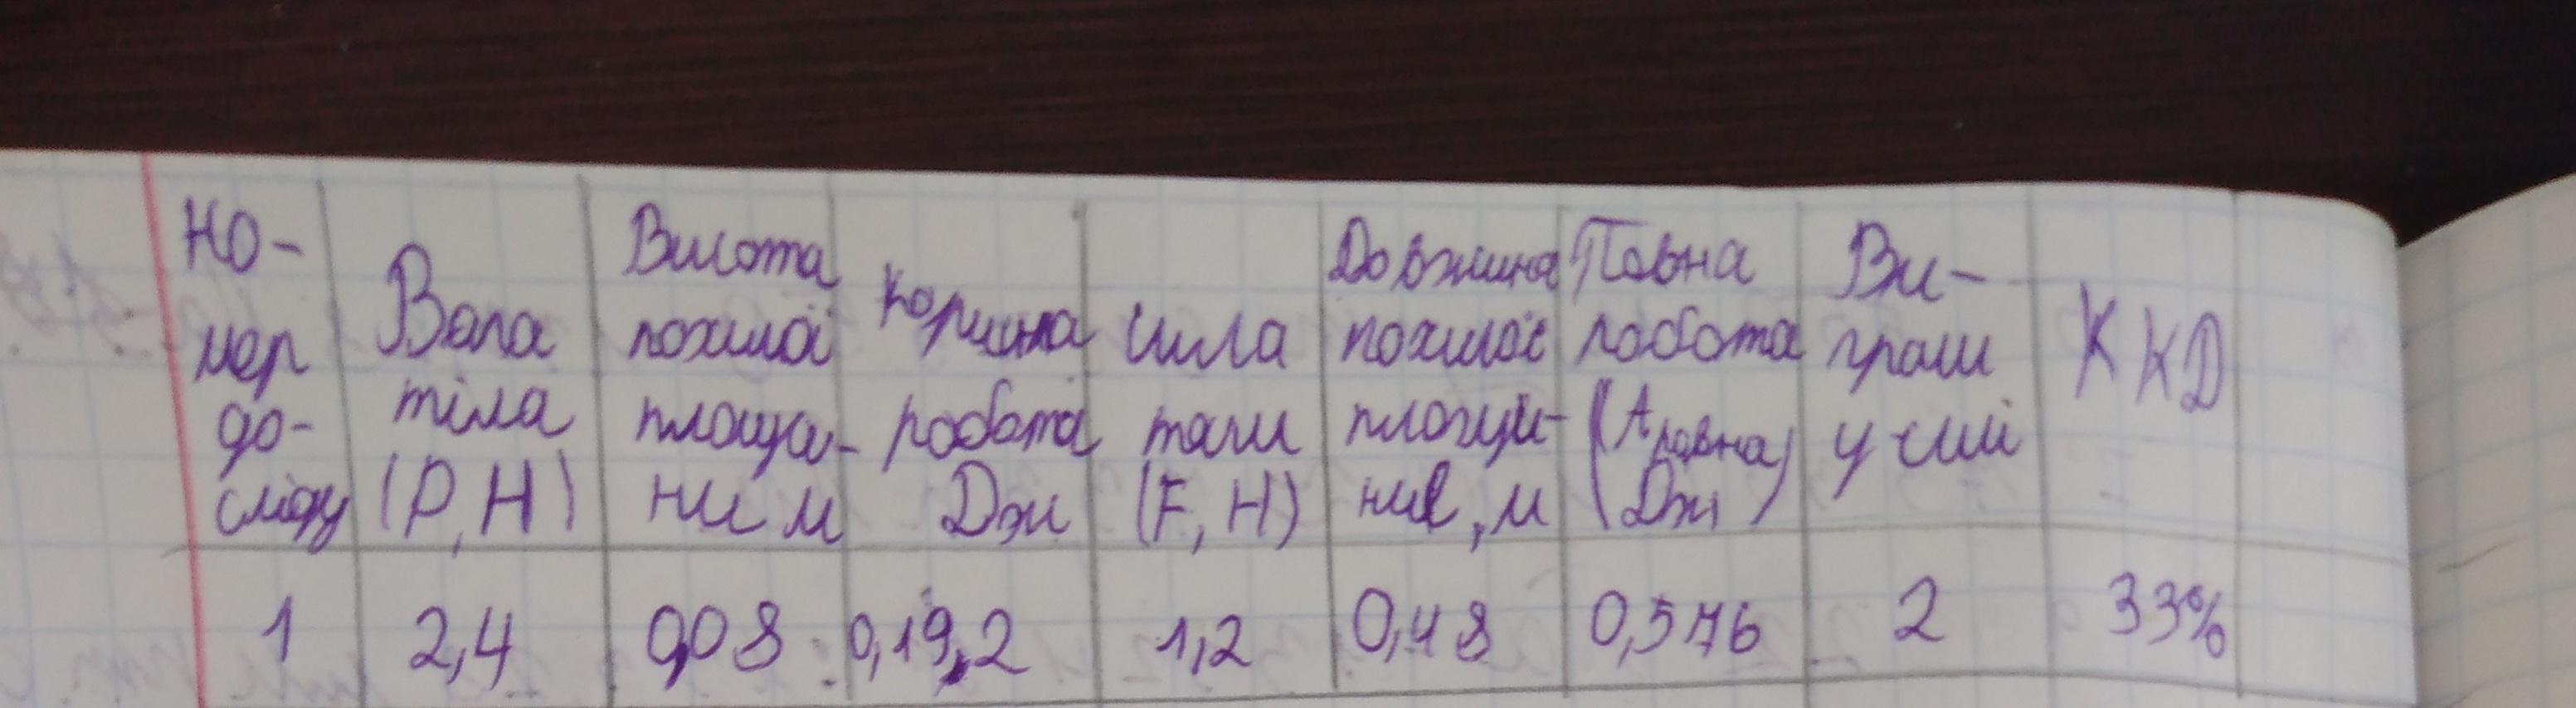 Но-
мер
до-
сліду
Вага
тіла
(P, Н)
Висота
похилої
площи-
ни м
Корисна
робота
Дж
Сила
тяги
(F, Н)
Довжина
похилої
площи-
ни l, м
Повна
робота
(Аповна)
(Дж)
Ви-
граш
у силі
ККД
1 2,4 0,08 0,19,2 1,2 0,48 0,576 2 33%